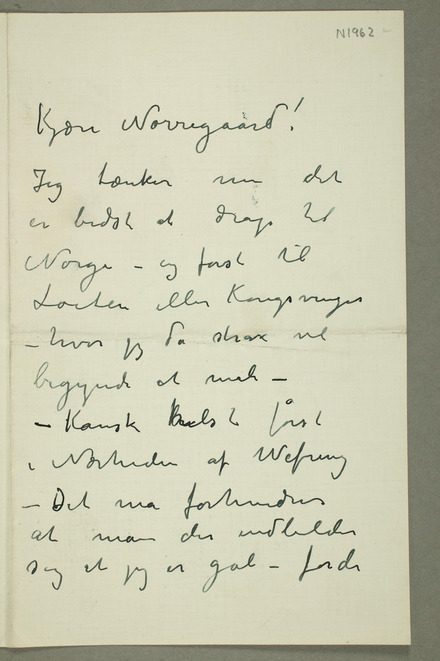 N1962
Kjære Nørregaard!
Jeg tænker nu det
er bedst at drage til
Norge – og først til
Løiten eller Kongsvinger
– hvor jeg da strax vil
begynde at male –
– Kanske helst først
i Nærheden af Wefring
– Det må forhindres
at man der indbilder
sig at jeg er gal – fordi